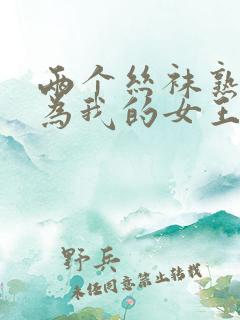 两个丝袜熟
为我的女王
野兵
未经同意禁止转载